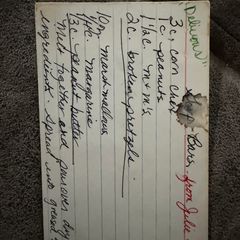 "Delicious"
Bars from Julie
3 c. corn chex
1 c. peanuts
1 1/2 c. m+m's
2 c. broken pretzels
marshmallows
1/4 c. margarine
1/3 c. peanut butter
Melt together and pour over dry
ingredients. Spread into greased